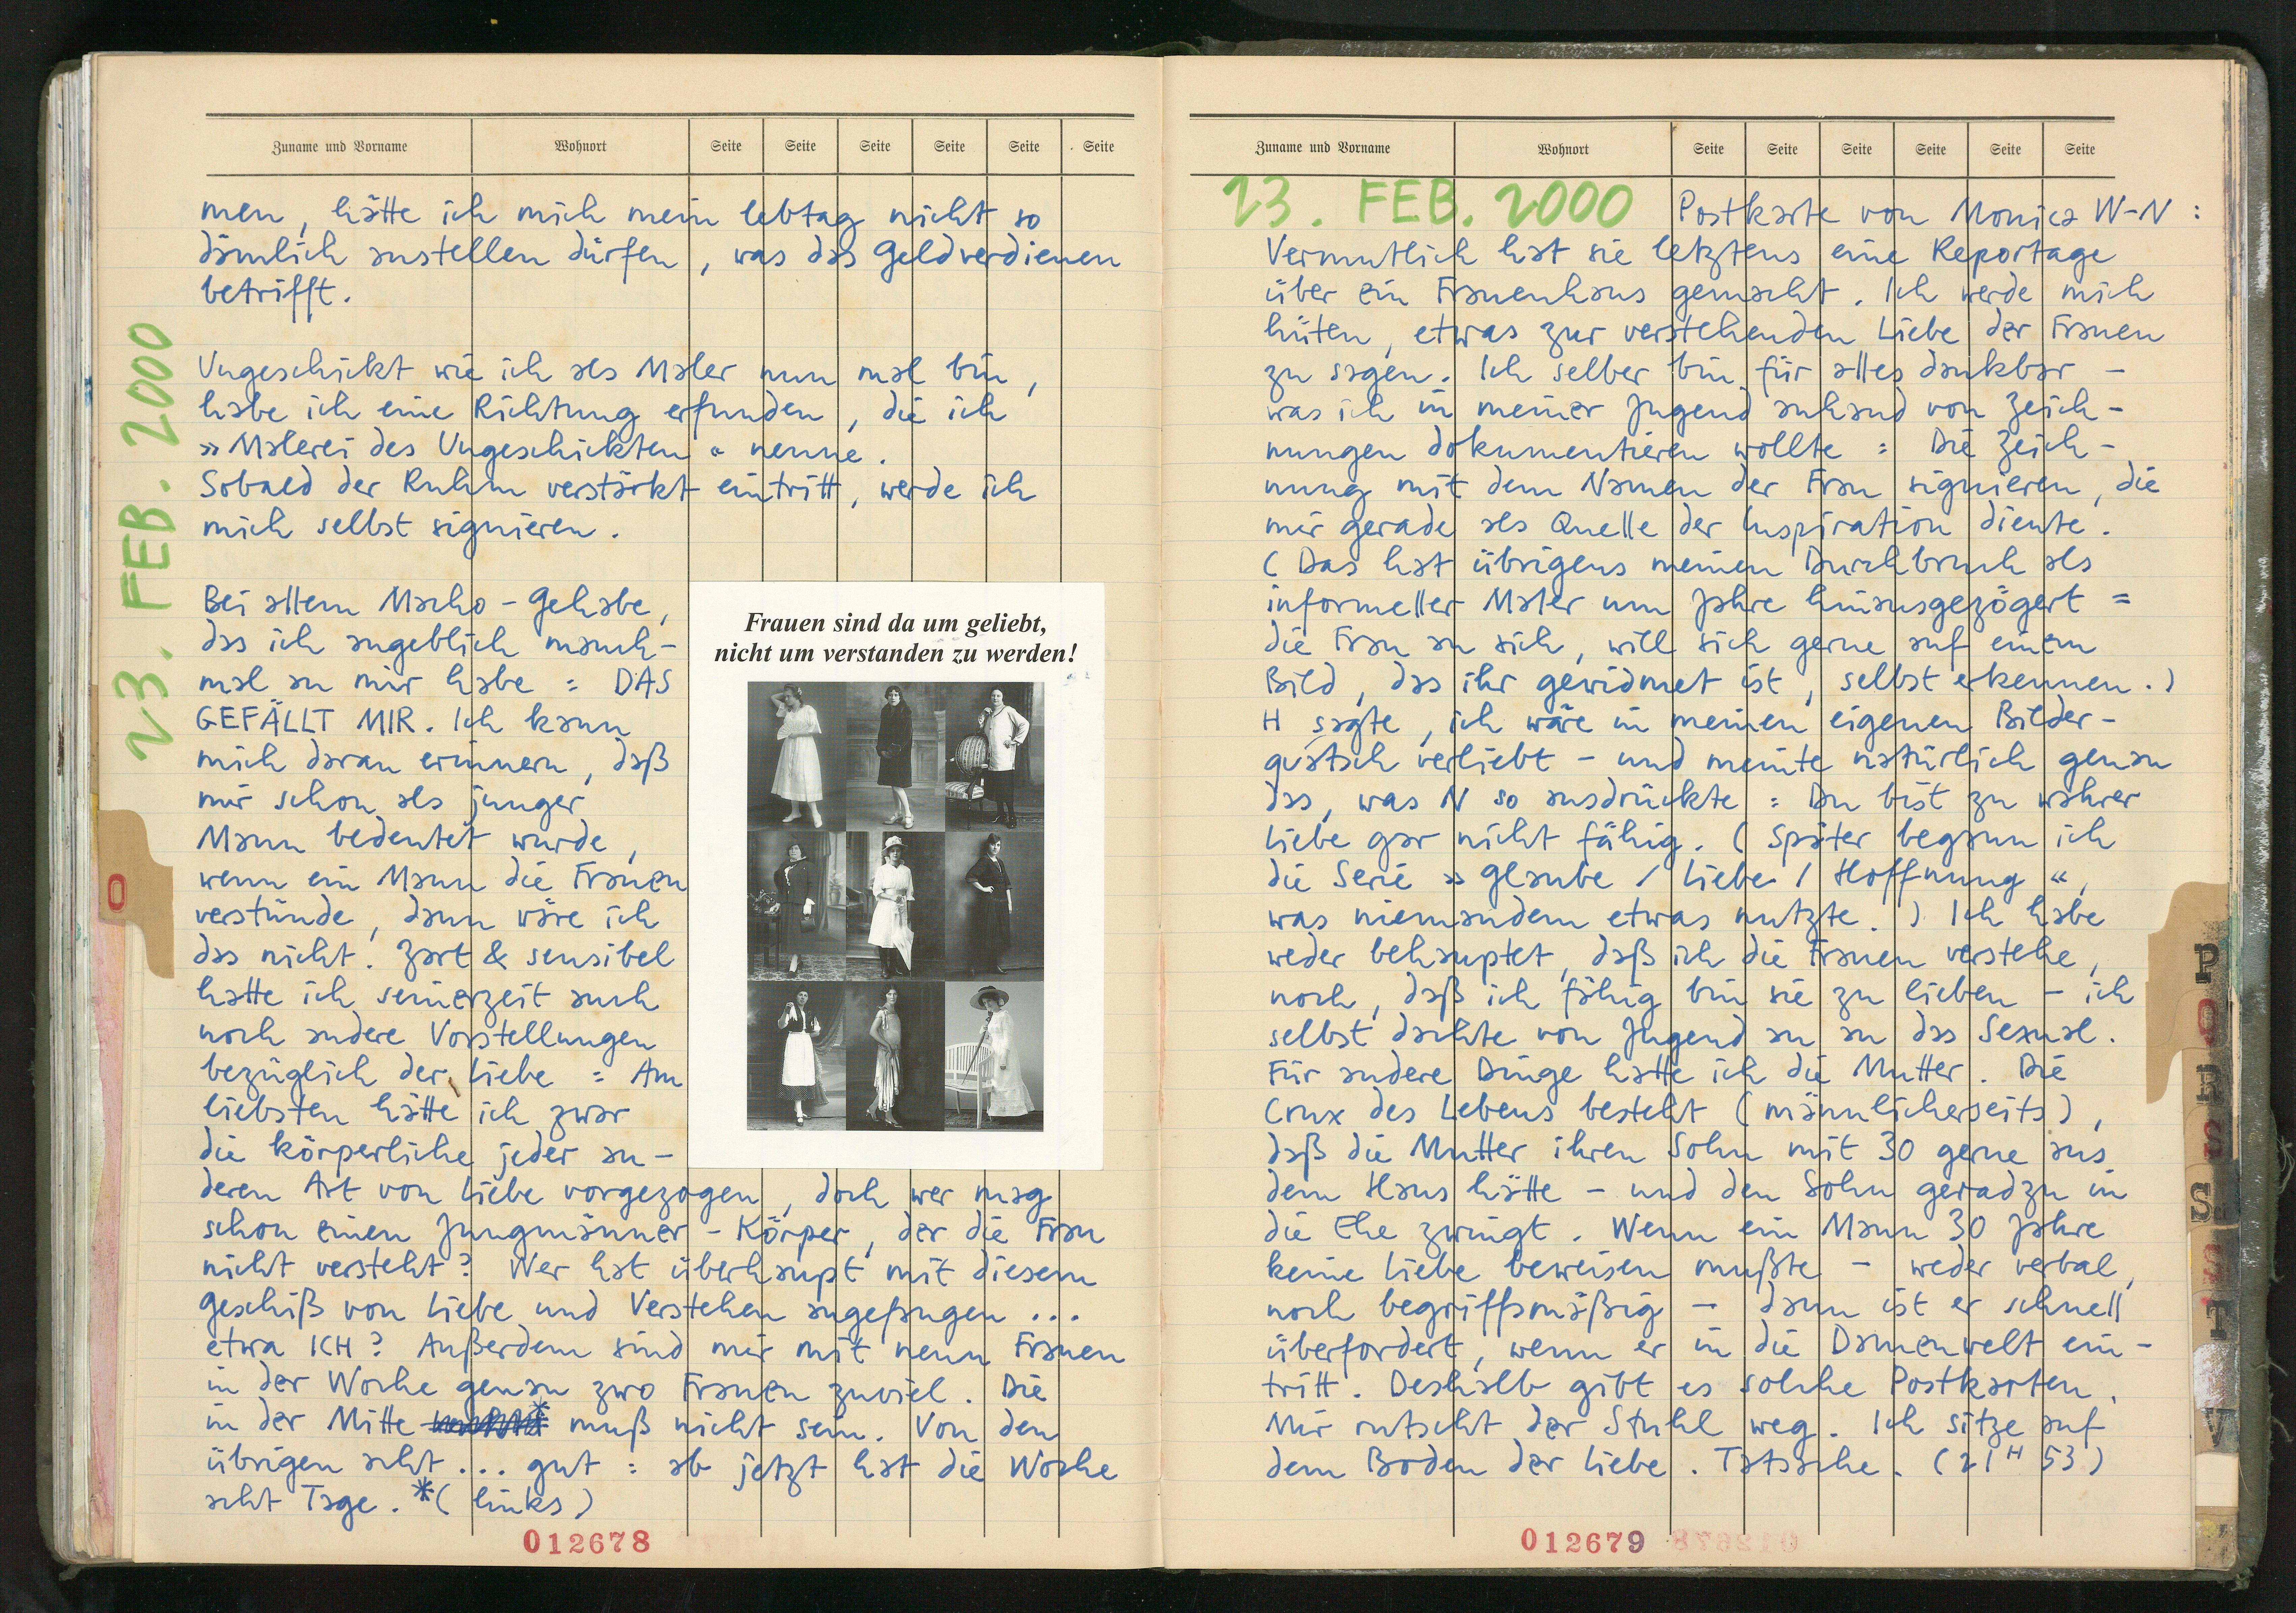 Zuname und Vorname Wohnort Seite Seite Seite Seite Seite Seite
23. FEB. 2000
men, hätte ich mich mein lebtag nicht so
dämlich anstellen dürfen, was das Geldverdienen
betrifft.
Ungeschickt wie ich als Maler nun mal bin,
habe ich eine Richtung erfunden, die ich
»Malerei des Ungeschickten« nenne.
Sobald der Ruhm verstärkt eintritt, werde ich
mich selbst signieren.
Bei allem Macho-Gehabe,
das ich angeblich manch-
mal an mir habe = DAS
GEFÄLLT MIR. Ich kann
mich daran erinnern, daß
mir schon als junger
Mann bedeutet wurde,
wenn ein Mann die Frauen
verstünde, dann wäre ich
das nicht. Zart & sensibel
hatte ich seinerzeit auch
noch andere Vorstellungen
bezüglich der Liebe = Am
liebsten hätte ich zwar
die körperliche jeder an-
deren Art von Liebe vorgezogen, doch wer mag
schon einen Jungmänner-Körper, der die Frau
nicht versteht? Wer hat überhaupt mit diesem
Geschiß von Liebe und Verstehen angefangen ...
etwa ICH? Außerdem sind mir mit neun Frauen
in der Woche genau zwo Frauen zuviel. Die
in der Mitte * muß nicht sein. Von den
übrigen acht ... gut : ab jetzt hat die Woche
acht Tage. *( links )
Frauen sind da um geliebt,
nicht um verstanden zu werden!
0
012678
Zuname und Vorname Wohnort Seite Seite Seite Seite Seite Seite
23. FEB. 2000 Postkarte von Monica W-N :
Vermutlich hat sie letztens eine Reportage
über ein Frauenhaus gemacht. Ich werde mich
hüten, etwas zur verstehenden Liebe der Frauen
zu sagen. Ich selber bin für alles dankbar –
was ich in meiner Jugend anhand von Zeich-
nungen dokumentieren wollte : Die Zeich-
nung mit dem Namen der Frau signieren, die
mir gerade als Quelle der Inspiration diente.
( Das hat übrigens meinen Durchbruch als
informeller Maler um Jahre hinausgezögert =
die Frau an sich, will sich gerne auf einem
Bild, das ihr gewidmet ist, selbst erkennen. )
H sagte, ich wäre in meinen eigenen Bilder-
quatsch verliebt – und meinte natürlich genau
das, was N so ausdrückte : Du bist zu wahrer
Liebe gar nicht fähig. ( Später begann ich
die Serie »Glaube / Liebe / Hoffnung«,
was niemandem etwas nutzte. ) Ich habe
weder behauptet, daß ich die Frauen verstehe,
noch, daß ich fähig bin sie zu lieben – ich
selbst dachte von Jugend an an das Sexual.
Für andere Dinge hatte ich die Mutter. Die
Crux des Lebens besteht (männlicherseits),
daß die Mutter ihren Sohn mit 30 gerne aus
dem Haus hätte – und den Sohn geradzu in
die Ehe zwingt. Wenn ein Mann 30 Jahre
keine Liebe beweisen mußte – weder verbal,
noch begriffsmäßig – dann ist er schnell
überfordert, wenn er in die Damenwelt ein-
tritt. Deshalb gibt es solche Postkarten.
Mir rutscht der Stuhl weg. Ich sitze auf
dem Boden der Liebe. Tatsache. (21H 53)
012679
P
O
R
S
S
T
V